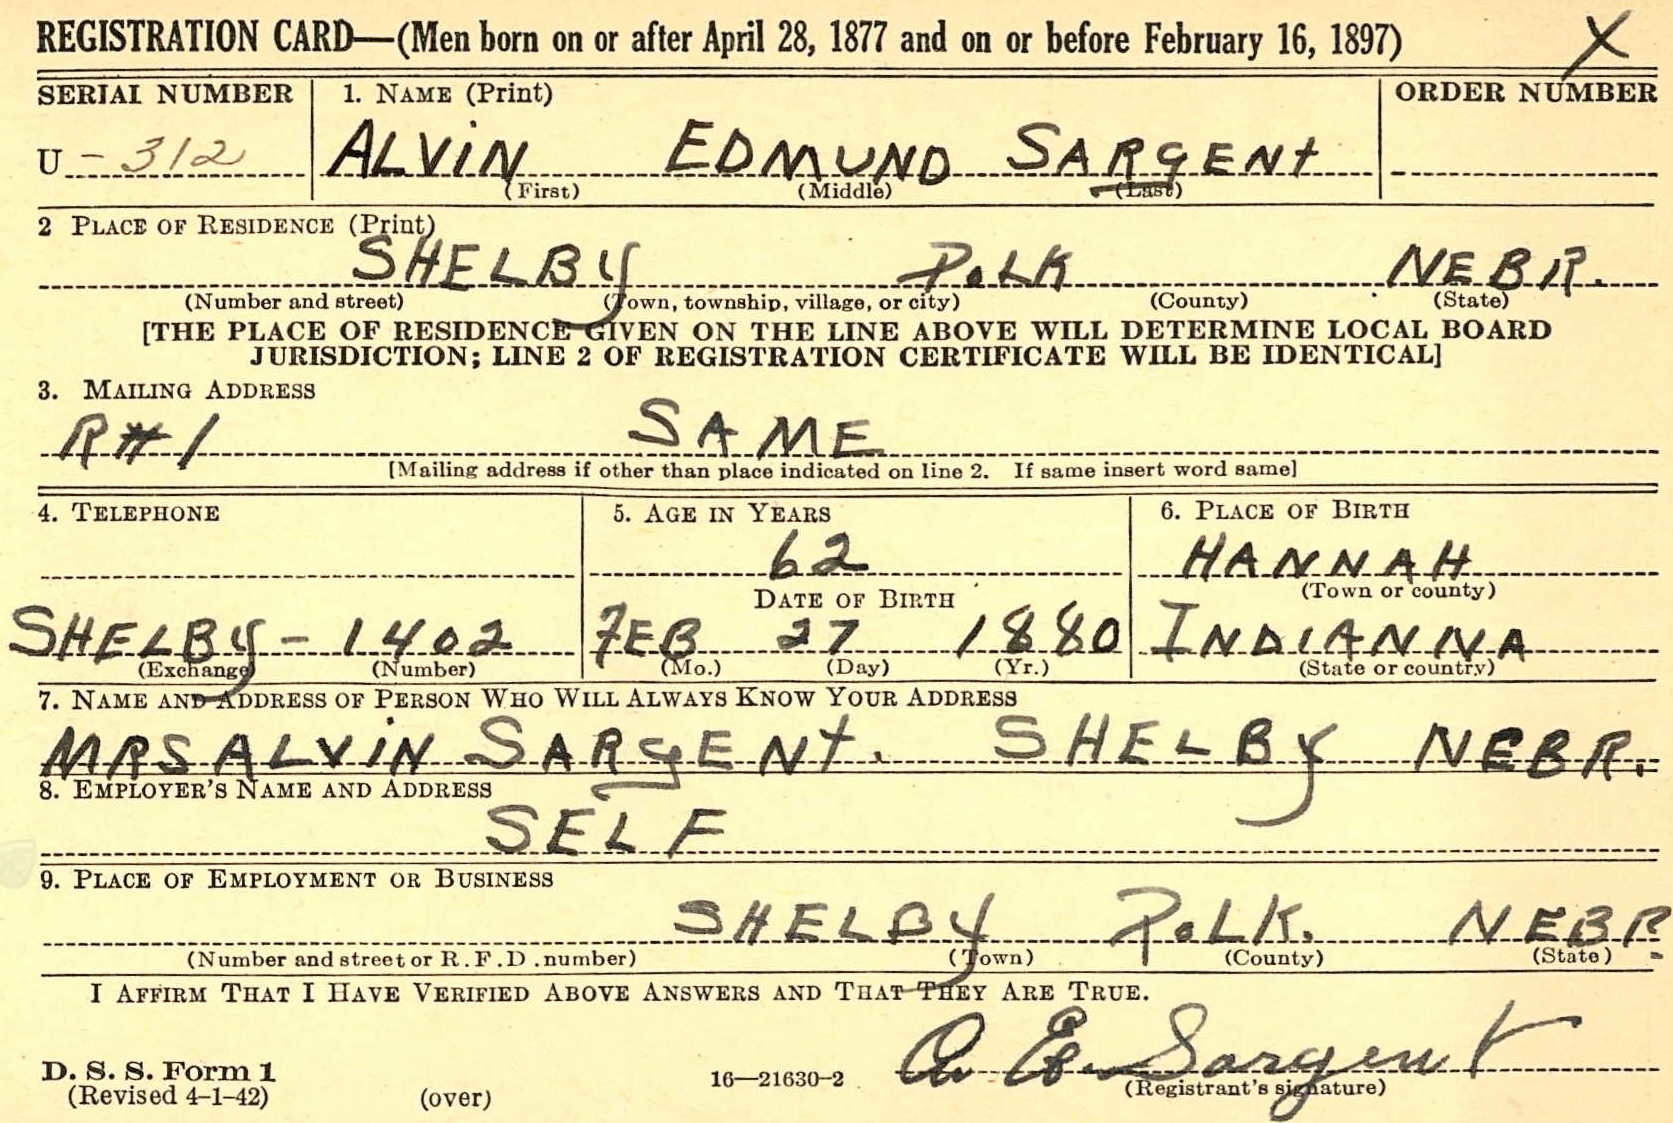 REGISTRATION CARD—(Men born on or after April 28, 1877 and on or before February 16, 1897) X
SERIAL NUMBER 1. NAME (Print) ORDER NUMBER
U - 312 ALVIN EDMUND SARGENT
(First) (Middle) (Last)
2 PLACE OF RESIDENCE (Print)
SHELBY POLK NEBR.
(Number and street) (Town, township, village, or city) (County) (State)
[THE PLACE OF RESIDENCE GIVEN ON THE LINE ABOVE WILL DETERMINE LOCAL BOARD
JURISDICTION; LINE 2 OF REGISTRATION CERTIFICATE WILL BE IDENTICAL]
3. MAILING ADDRESS
R#1 SAME
[Mailing address if other than place indicated on line 2. If same insert word same]
4. TELEPHONE 5. AGE IN YEARS 6. PLACE OF BIRTH
62 HANNAH
DATE OF BIRTH (Town or county)
SHELBY - 1402 FEB 27 1880 INDIANNA
(Exchange) (Number) (Mo.) (Day) (Yr.) (State or country)
7. NAME AND ADDRESS OF PERSON WHO WILL ALWAYS KNOW YOUR ADDRESS
MRS ALVIN SARGENT. SHELBY NEBR.
8. EMPLOYER'S NAME AND ADDRESS
SELF
9. PLACE OF EMPLOYMENT OR BUSINESS
SHELBY POLK. NEBR.
(Number and street or R.F.D. number) (Town) (County) (State)
I AFFIRM THAT I HAVE VERIFIED ABOVE ANSWERS AND THAT THEY ARE TRUE.
A. E. Sargent
D. S. S. Form 1 16—21630-2 (Registrant's signature)
(Revised 4-1-42) (over)